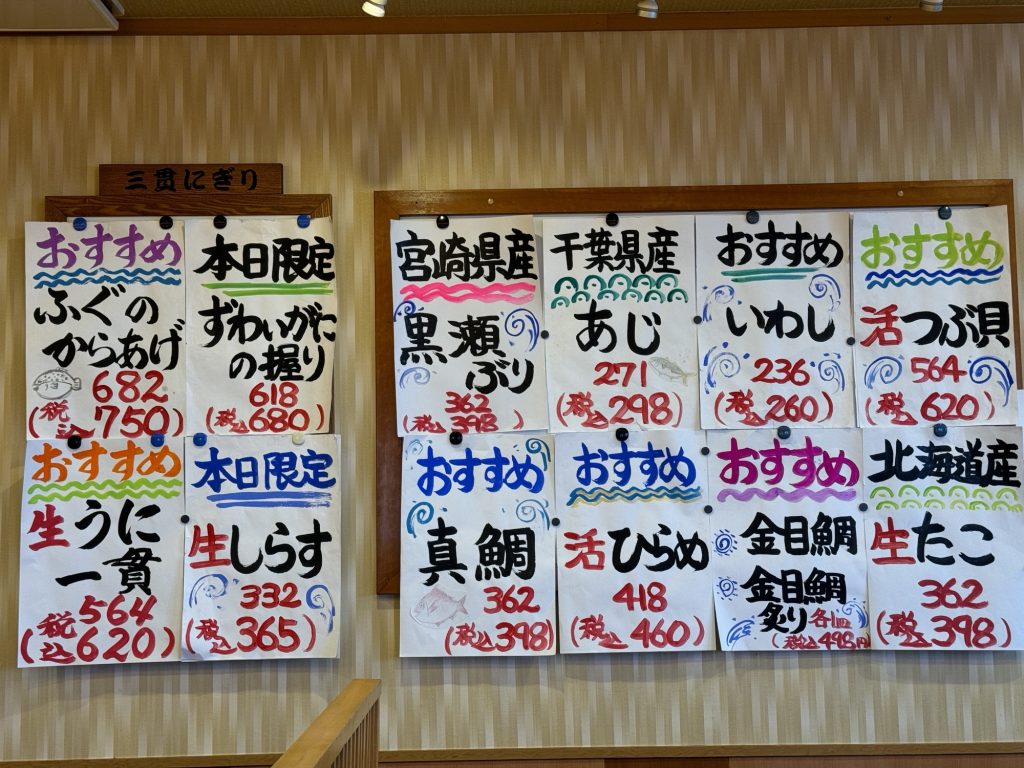 三貫にぎり
おすすめ
ふぐの
からあげ
682
(税込750)
本日限定
ずわいがに
の握り
618
(税込680)
おすすめ
生うに
一貫
564
(税込620)
本日限定
生しらす
332
(税込365)
宮崎県産
黒瀬
ぶり
362
(税込398)
千葉県産
あじ
271
(税込298)
おすすめ
いわし
236
(税込260)
おすすめ
活つぶ貝
564
(税込620)
おすすめ
真鯛
362
(税込398)
おすすめ
活ひらめ
418
(税込460)
おすすめ
金目鯛
金目鯛
炙り各1皿
(税込498円)
北海道産
生たこ
362
(税込398)